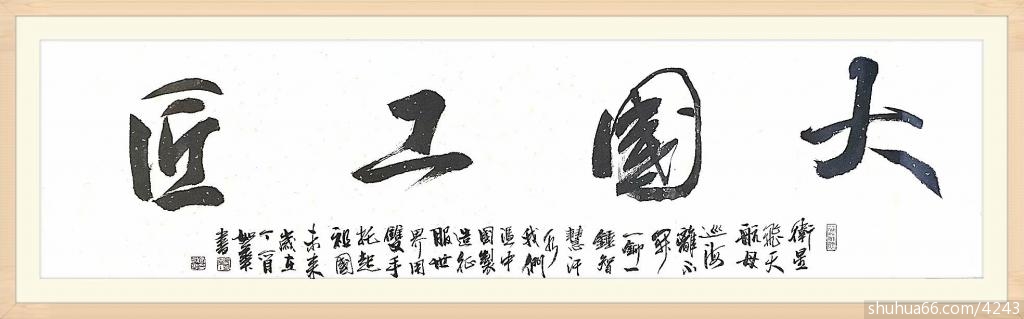 大國工匠
衛星
飛天
航母
巡海
離不
開
一鉚一
錘智
慧汗
水
我們
讓中
國製
造征
服世
界用
雙手
托起
祖國
未來
歲在
丁酉
如華
書
shuhua66.com/4243